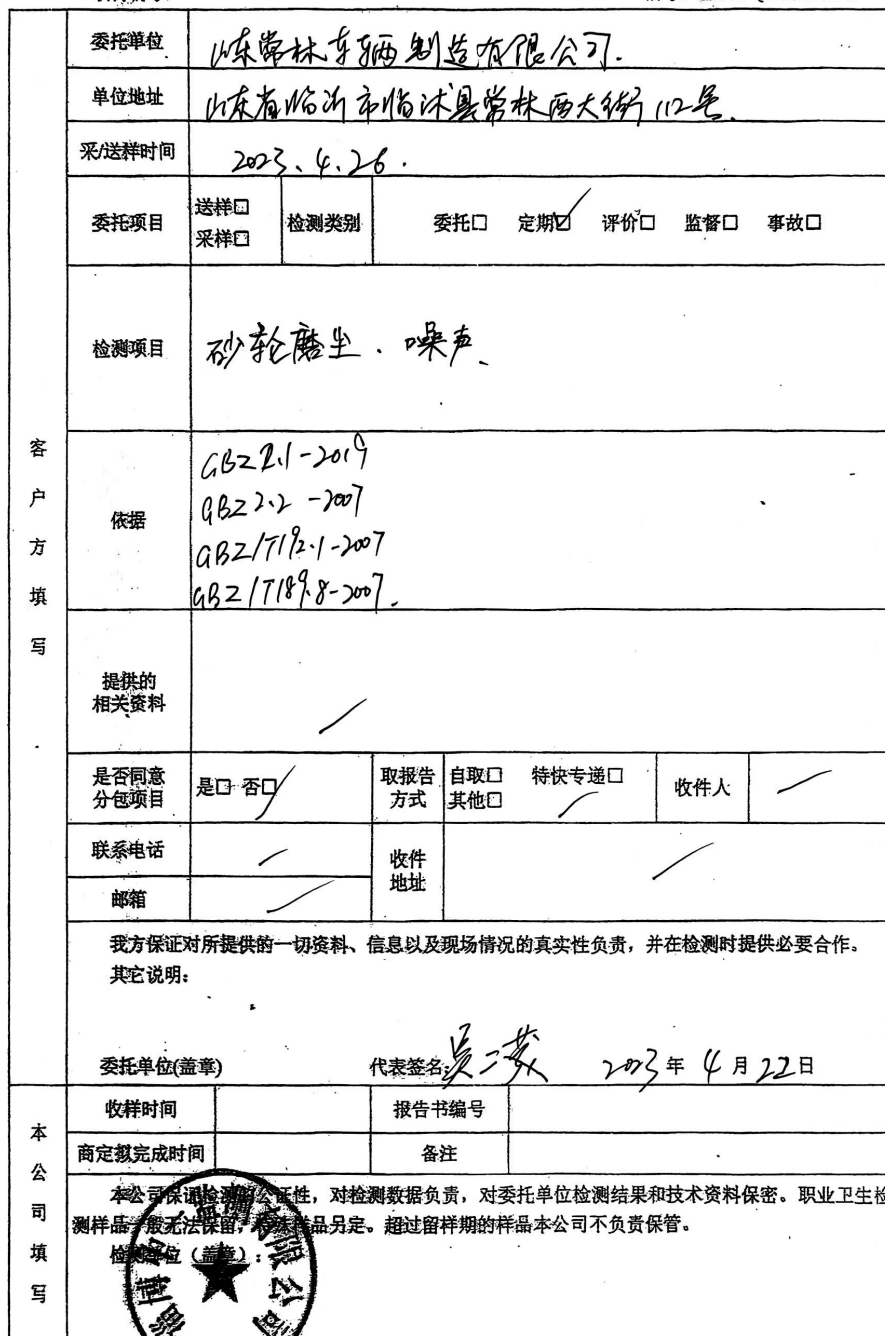 委托单位 山东常林车辆制造有限公司.
单位地址 山东省临沂市临沭县常林西大街112号.
采/送样时间 2023.4.26.
委托项目 送样□ 采样□ 检测类别 委托□ 定期☑ 评价□ 监督□ 事故□
检测项目 砂轮磨尘、噪声、
客户方填写
依据
GBZ2.1-2019
GBZ2.2-2007
GBZ/T192.1-2007
GBZ/T189.8-2007.
提供的
相关资料 /
是否同意
分包项目 是□ 否□/ 取报告方式 自取□ 特快专递□ 其他□ / 收件人 /
联系电话 / 收件地址 /
邮箱 /
我方保证对所提供的一切资料、信息以及现场情况的真实性负责,并在检测时提供必要合作。
其它说明:
委托单位(盖章) 代表签名: 2023年4月22日
本公司填写
收样时间 报告书编号
商定拟完成时间 备注
本公司保证检测的公证性,对检测数据负责,对委托单位检测结果和技术资料保密。职业卫生检
测样品一般无法保留,特殊样品另定。超过留样期的样品本公司不负责保管。
检测单位(盖章):